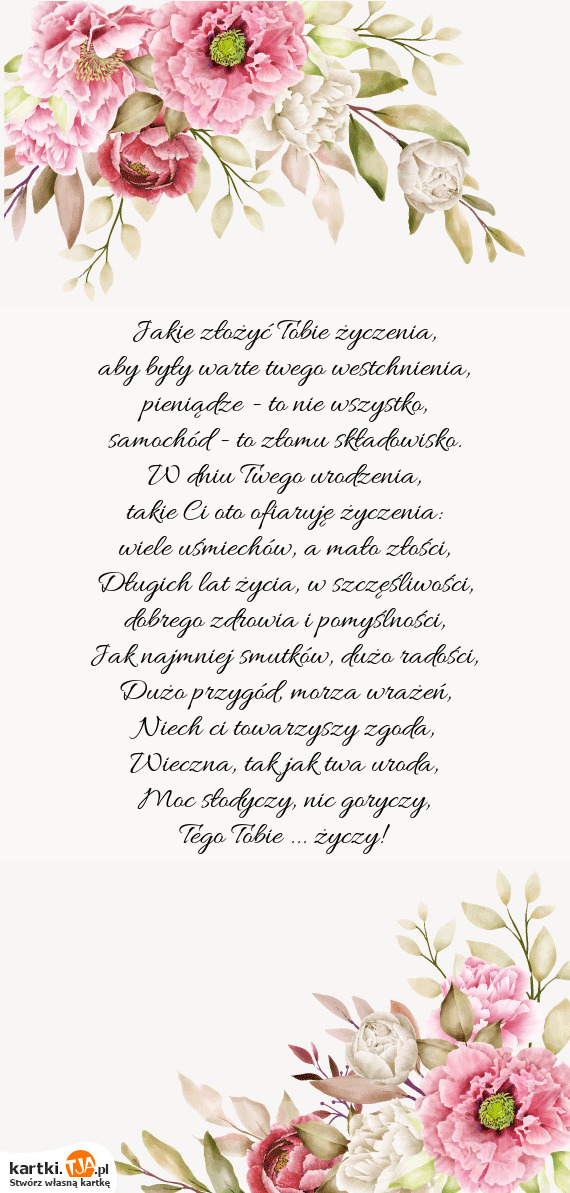 Jakie złożyć Tobie życzenia,
aby były warte twego westchnienia,
pieniądze - to nie wszystko,
samochód - to złomu składowisko.
W dniu Twego urodzenia,
takie Ci oto ofiaruję życzenia:
wiele uśmiechów, a mało złości,
Długich lat życia, w szczęśliwości,
dobrego zdrowia i pomyślności,
Jak najmniej smutków, dużo radości,
Dużo przygód, morza wrażeń,
Niech ci towarzyszy zgoda,
Wieczna, tak jak twa uroda,
Moc słodyczy, nic goryczy,
Tego Tobie ... życzy!
kartki.TJA.pl
Stwórz własną kartkę